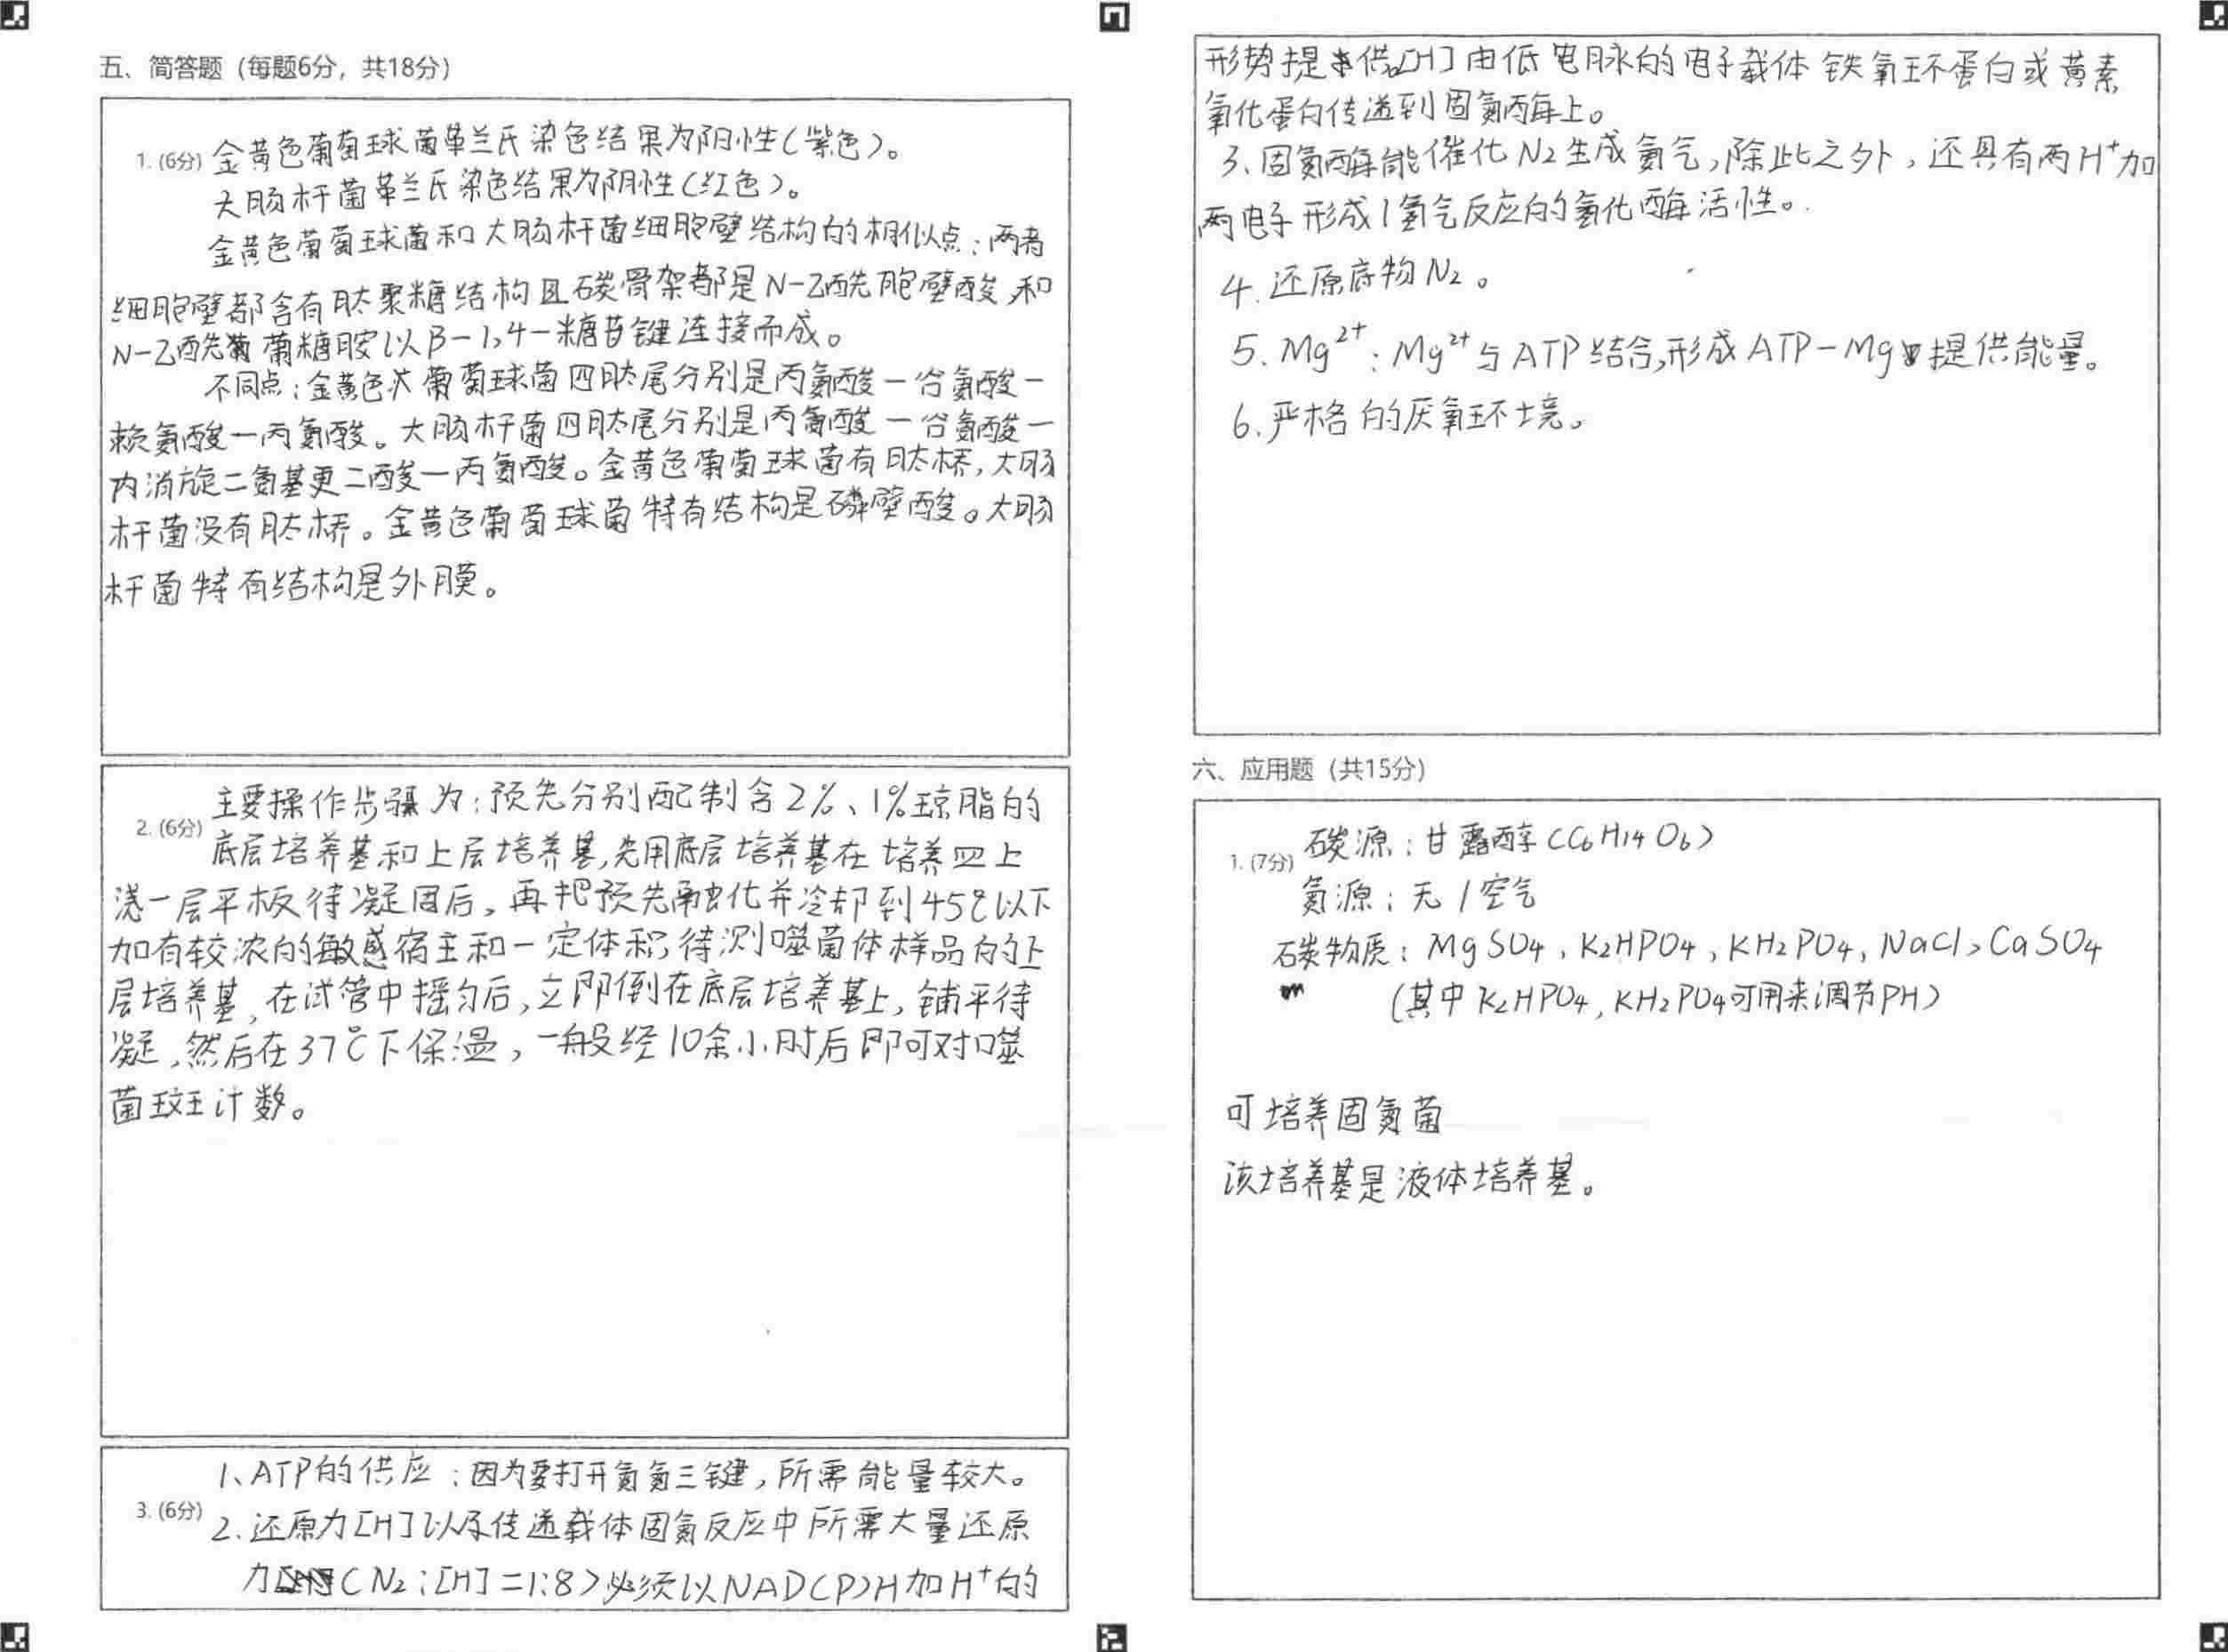 五、简答题（每题6分，共18分）
1. (6分) 金黄色葡萄球菌革兰氏染色结果为阳性（紫色）。
大肠杆菌革兰氏染色结果为阴性（红色）。
金黄色葡萄球菌和大肠杆菌细胞壁结构的相似点：两者
细胞壁都含有肽聚糖结构且碳骨架都是N-乙酰胞壁酸和
N-乙酰葡萄糖胺以β-1,4-糖苷键连接而成。
不同点：金黄色葡萄球菌四肽尾分别是丙氨酸-谷氨酸-
赖氨酸-丙氨酸。大肠杆菌四肽尾分别是丙氨酸-谷氨酸-
内消旋二氨基更二酸-丙氨酸。金黄色葡萄球菌有肽桥，大肠
杆菌没有肽桥。金黄色葡萄球菌特有结构是磷壁酸。大肠
杆菌特有结构是外膜。
2. (6分) 主要操作步骤为：预先分别配制含2%、1%琼脂的
底层培养基和上层培养基，先用底层培养基在培养皿上
浇一层平板待凝固后，再把预先融化并冷却到45℃以下
加有较浓的敏感宿主和一定体积待测噬菌体样品的上
层培养基，在试管中摇匀后，立即倒在底层培养基上，铺平待
凝，然后在37℃下保温，一般经10余小时后即可对噬
菌斑计数。
3. (6分) 1、ATP的供应：因为要打开氮氮三键，所需能量较大。
2. 还原力[H]以及传递载体固氮反应中所需大量还原
力（N₂:[H]=1:8）必须以NAD(P)H加H⁺的
形势提供。[H]由低电脉的电子载体铁氧环蛋白或黄素
氧化蛋白传递到固氮酶上。
3、固氮酶能催化N₂生成氨气，除此之外，还具有两H⁺加
两电子形成1氢气反应的氢化酶活性。
4. 还原底物N₂。
5. Mg²⁺：Mg²⁺与ATP结合，形成ATP-Mg提供能量。
6. 严格的厌氧环境。
六、应用题（共15分）
1. (7分) 碳源：甘露醇（C₆H₁₄O₆）
氮源：无/空气
碳物质：MgSO₄，K₂HPO₄，KH₂PO₄，NaCl，CaSO₄
（其中K₂HPO₄，KH₂PO₄可用来调节PH）
可培养固氮菌
该培养基是液体培养基。